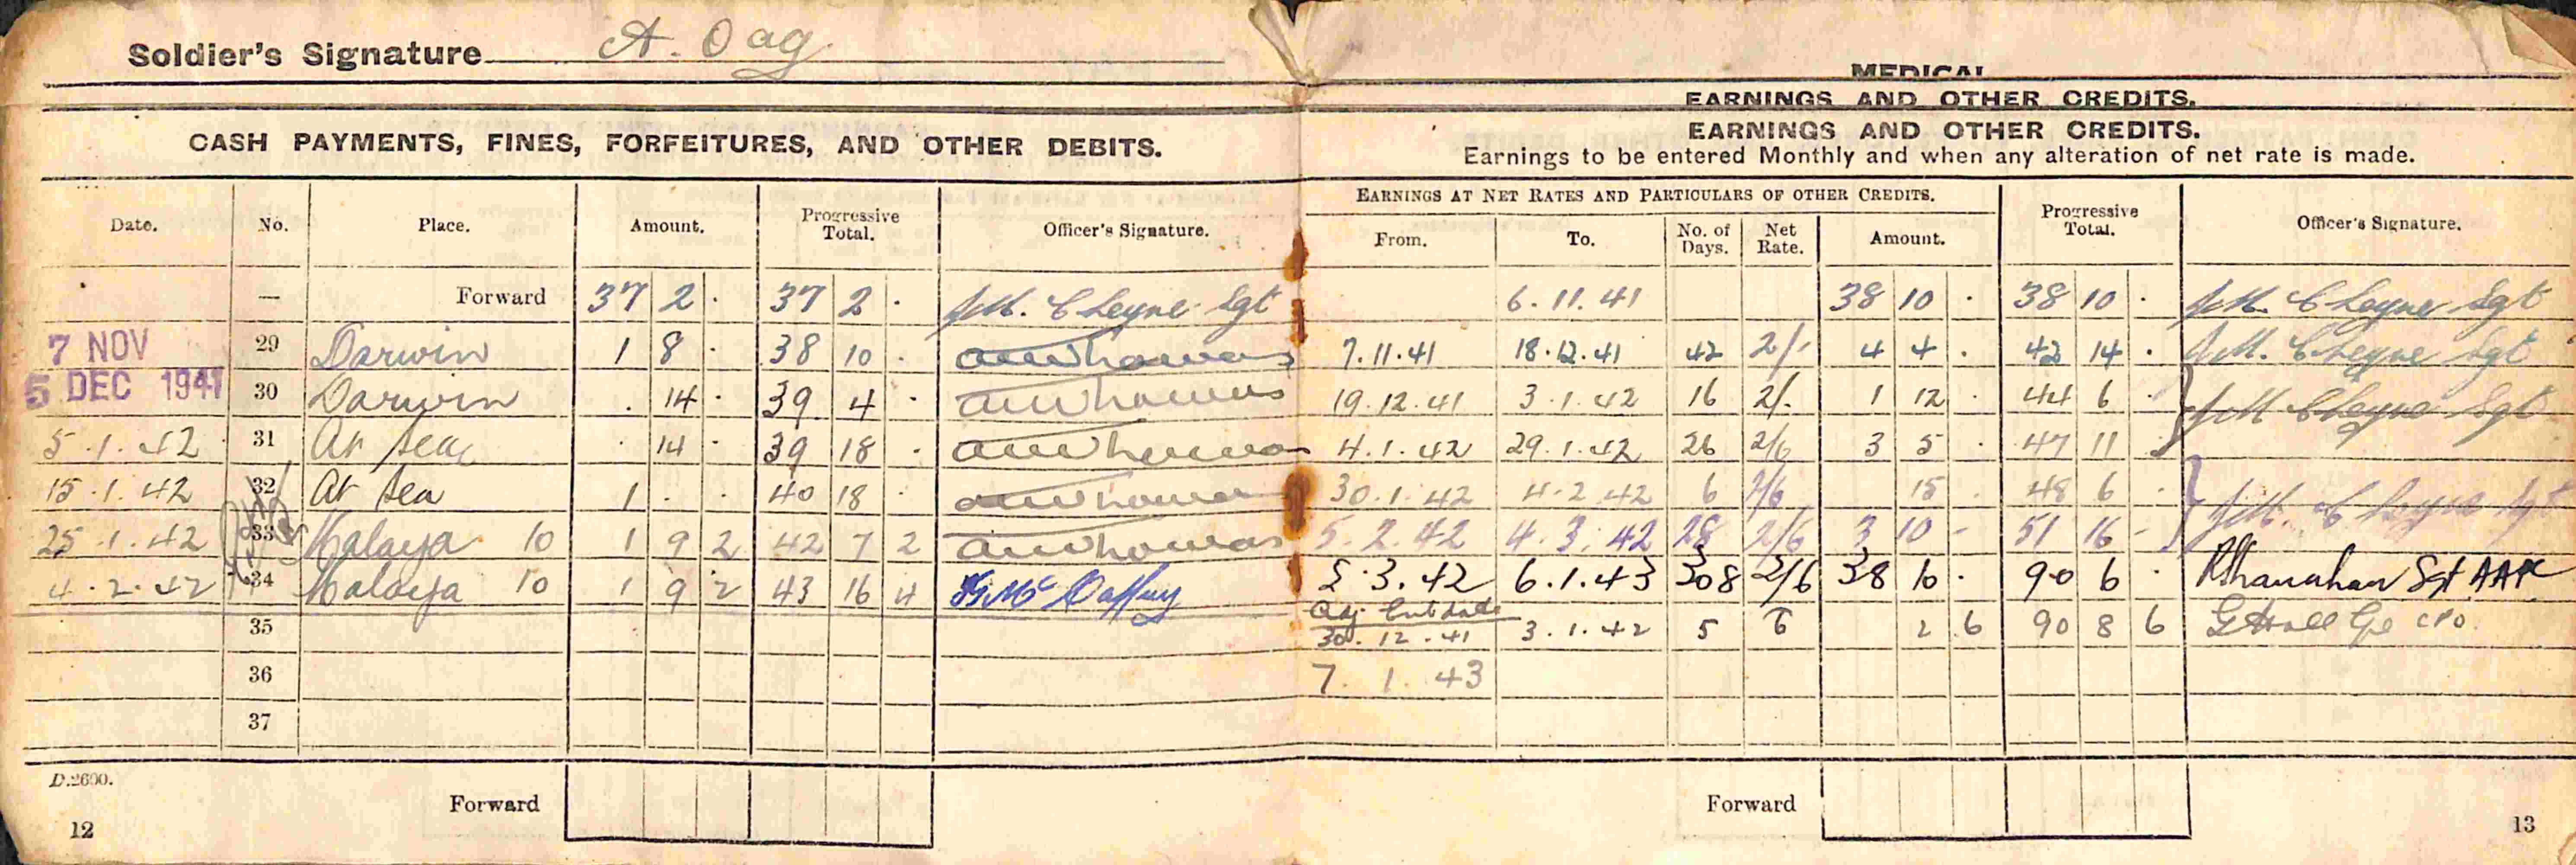 Soldier's Signature A. Oag
CASH PAYMENTS, FINES, FORFEITURES, AND OTHER DEBITS.
Date. No. Place. Amount. Progressive Total. Officer's Signature.
— Forward 37 2 · 37 2 · Cheyne Sgt
7 NOV 29 Darwin 1 8 · 38 10 ·
5 DEC 1941 30 Darwin . 14 · 39 4 ·
5.1.42 31 At Sea · 14 · 39 18 ·
15.1.42 32 At Sea 1 · · 40 18 ·
25.1.42 33 Malaya 10 1 9 2 42 7 2
4.2.42 34 Malaya 10 1 9 2 43 16 4
35
36
37
D.2600.
Forward
12
MEDICAL
EARNINGS AND OTHER CREDITS.
EARNINGS AND OTHER CREDITS.
Earnings to be entered Monthly and when any alteration of net rate is made.
EARNINGS AT NET RATES AND PARTICULARS OF OTHER CREDITS.
From. To. No. of Days. Net Rate. Amount. Progressive Total. Officer's Signature.
6.11.41 38 10 · 38 10 · Cheyne Sgt
7.11.41 18.12.41 42 2/- 4 4 · 42 14 · Cheyne Sgt
19.12.41 3.1.42 16 2/- 1 12 · 44 6 · Cheyne Sgt
4.1.42 29.1.42 26 2/6 3 5 · 47 11 ·
30.1.42 4.2.42 6 2/6 15 · 48 6 · Cheyne Sgt
5.2.42 4.3.42 28 2/6 3 10 - 51 16 -
5.3.42 6.1.43 308 2/6 38 10 · 90 6 · Shanahan Sgt
Adj
30.12.41 3.1.42 5 6 2 6 90 8 6
7.1.43
Forward
13